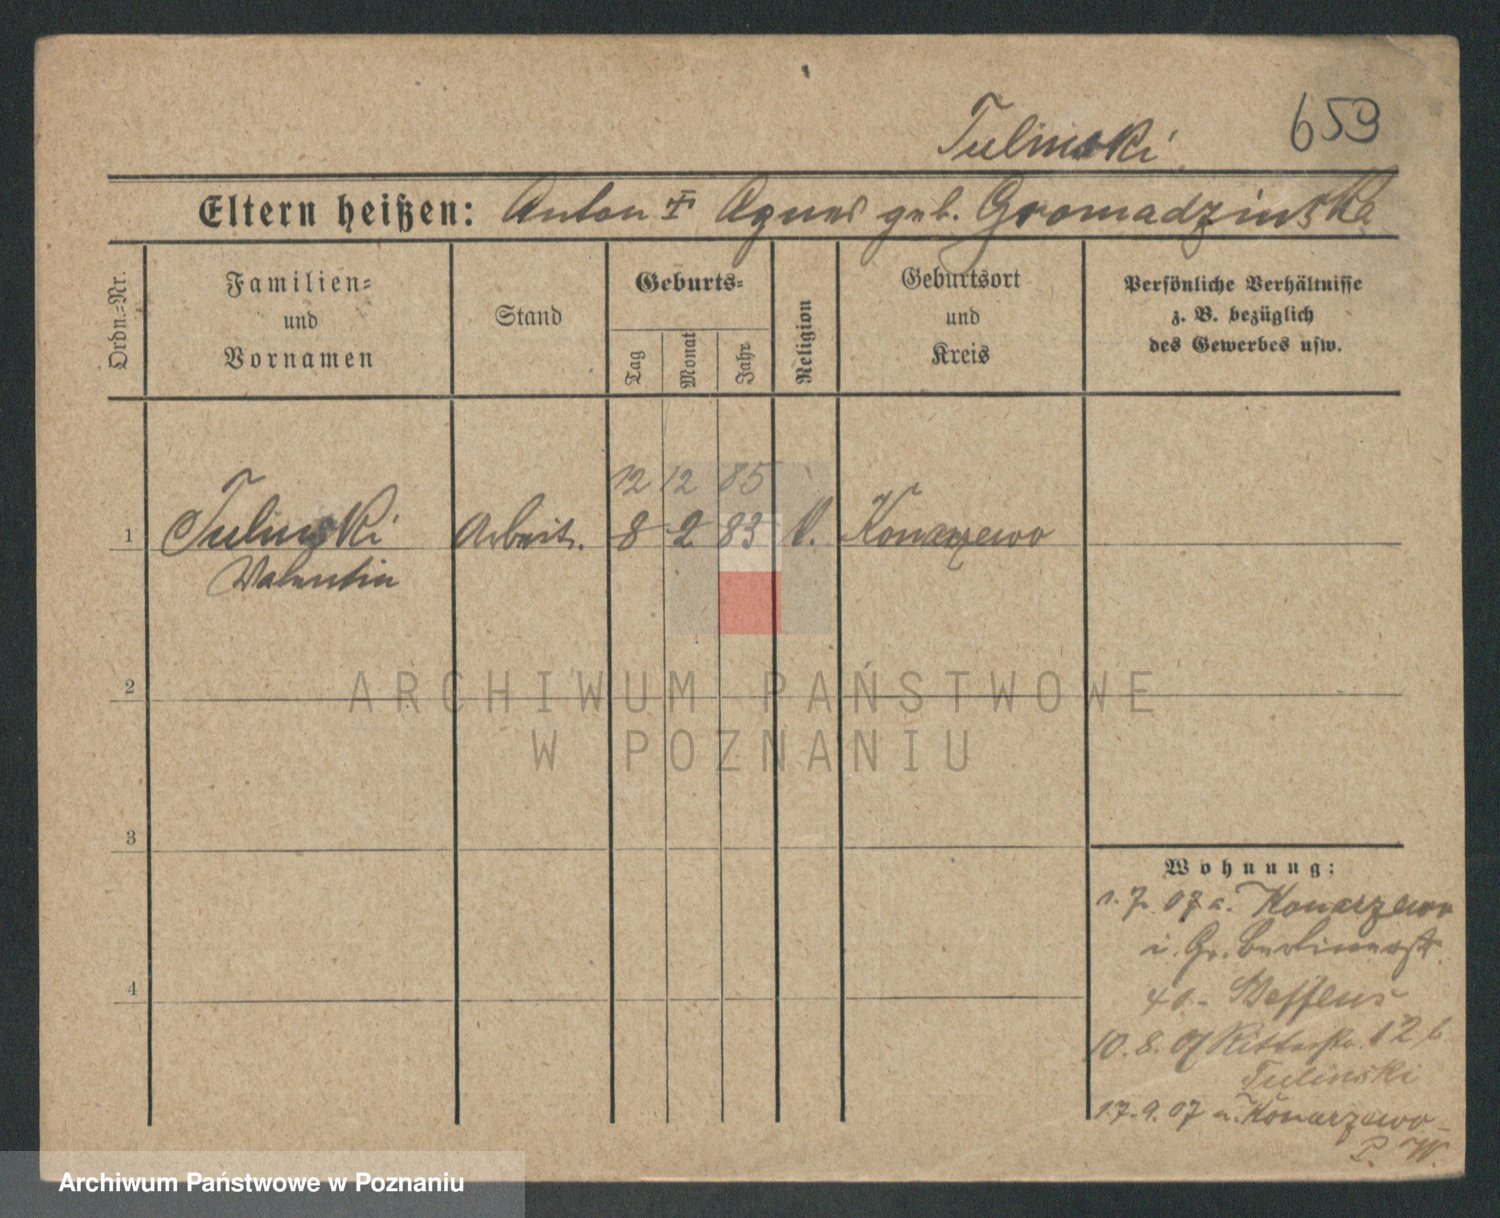 659
Tulinski
Eltern heißen: Anton Agnes geb. Gromadzinska
Ordn.=Nr.
Familien=
und
Vornamen
Stand
Geburts=
Tag
Monat
Jahr
Religion
Geburtsort
und
Kreis
Persönliche Verhältnisse
z. B. bezüglich
des Gewerbes usw.
12 12 85
1 Tulinski Arbeit. 8 2 83 k. Konarzewo
Valentin
2
3
4
ARCHIWUM PAŃSTWOWE
W POZNANIU
Wohnung:
1.7.07 a. Konarzewo
i. Gr. Berlinerstr.
40. Steffens
10.8.07 Ritterstr. 12 b
Tulinski
17.9.07 n. Konarzewo
P. W.
Archiwum Państwowe w Poznaniu